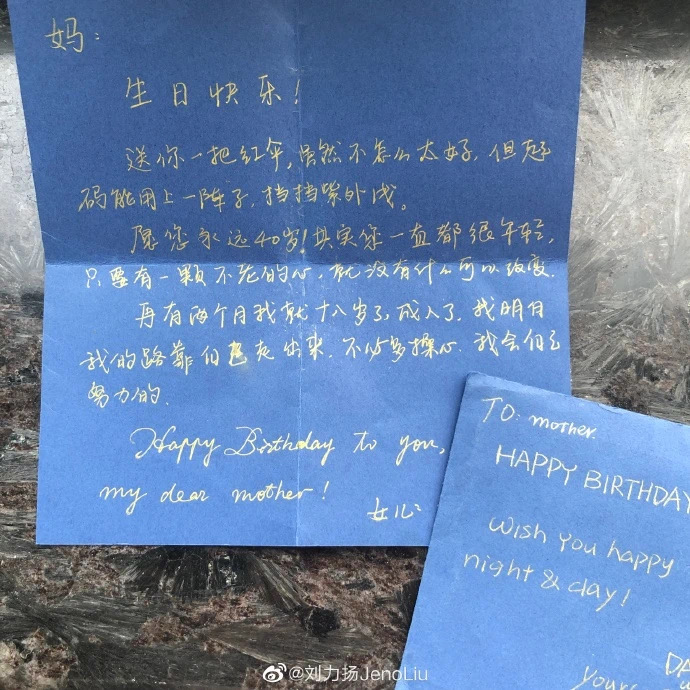 妈：
生日快乐！
送你一把红伞，虽然不怎么太好，但起
码能用上一阵子，挡挡紫外线。
愿您永远40岁！其实您一直都很年轻，
只要有一颗不老的心，就没有什么可以改变。
再有两个月我就十八岁了，成人了，我明白
我的路靠自己走出来，不必多操心，我会自己
努力的.
Happy Birthday to you,
my dear mother!
女儿：
TO: mother.
HAPPY BIRTHDAY
Wish you happy
night & day!
DA
yours
@刘力扬JenoLiu